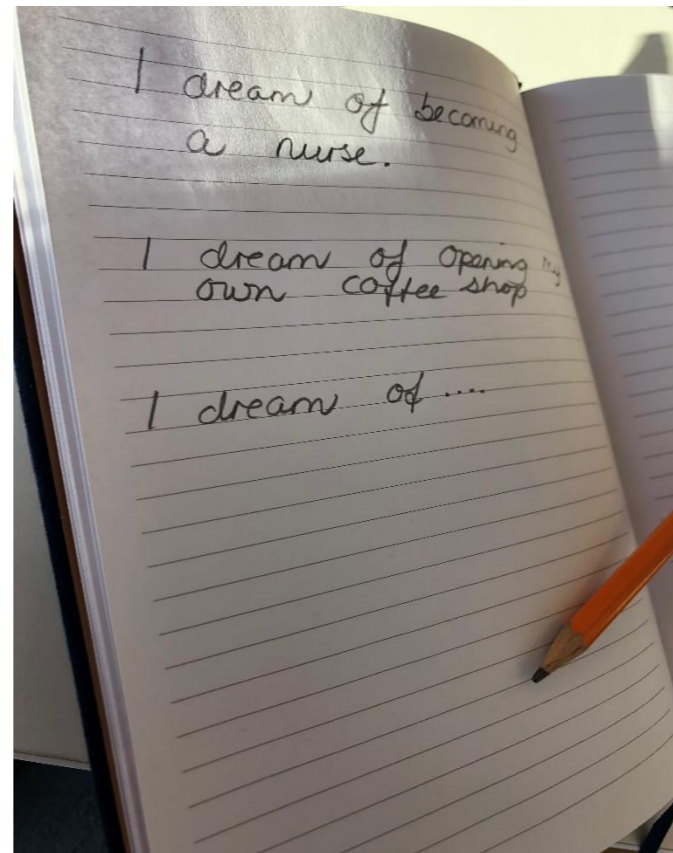 I dream of becoming
a nurse.
I dream of opening my
own coffee shop
I dream of ....